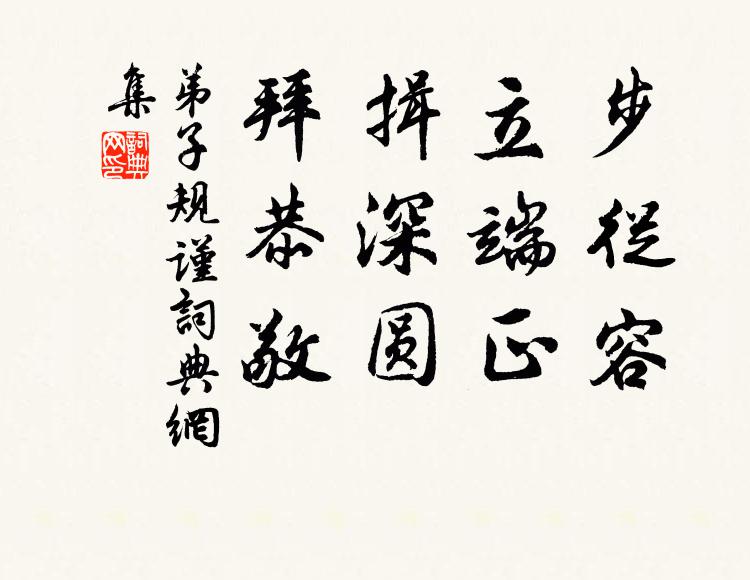 步從容
立端正
揖深圓
拜恭敬
弟子規謹詞典網
集
詞典
網印